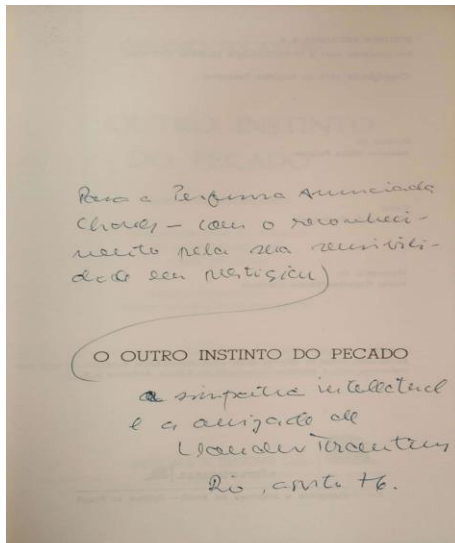 Para a Professora Anunciada
Chaves – com o reconheci-
mento pela sua sensibili-
dade em prestigiar
O OUTRO INSTINTO DO PECADO
a simpatia intelectual
e a amizade de
Leandro Tocantins
Rio, agosto 76.